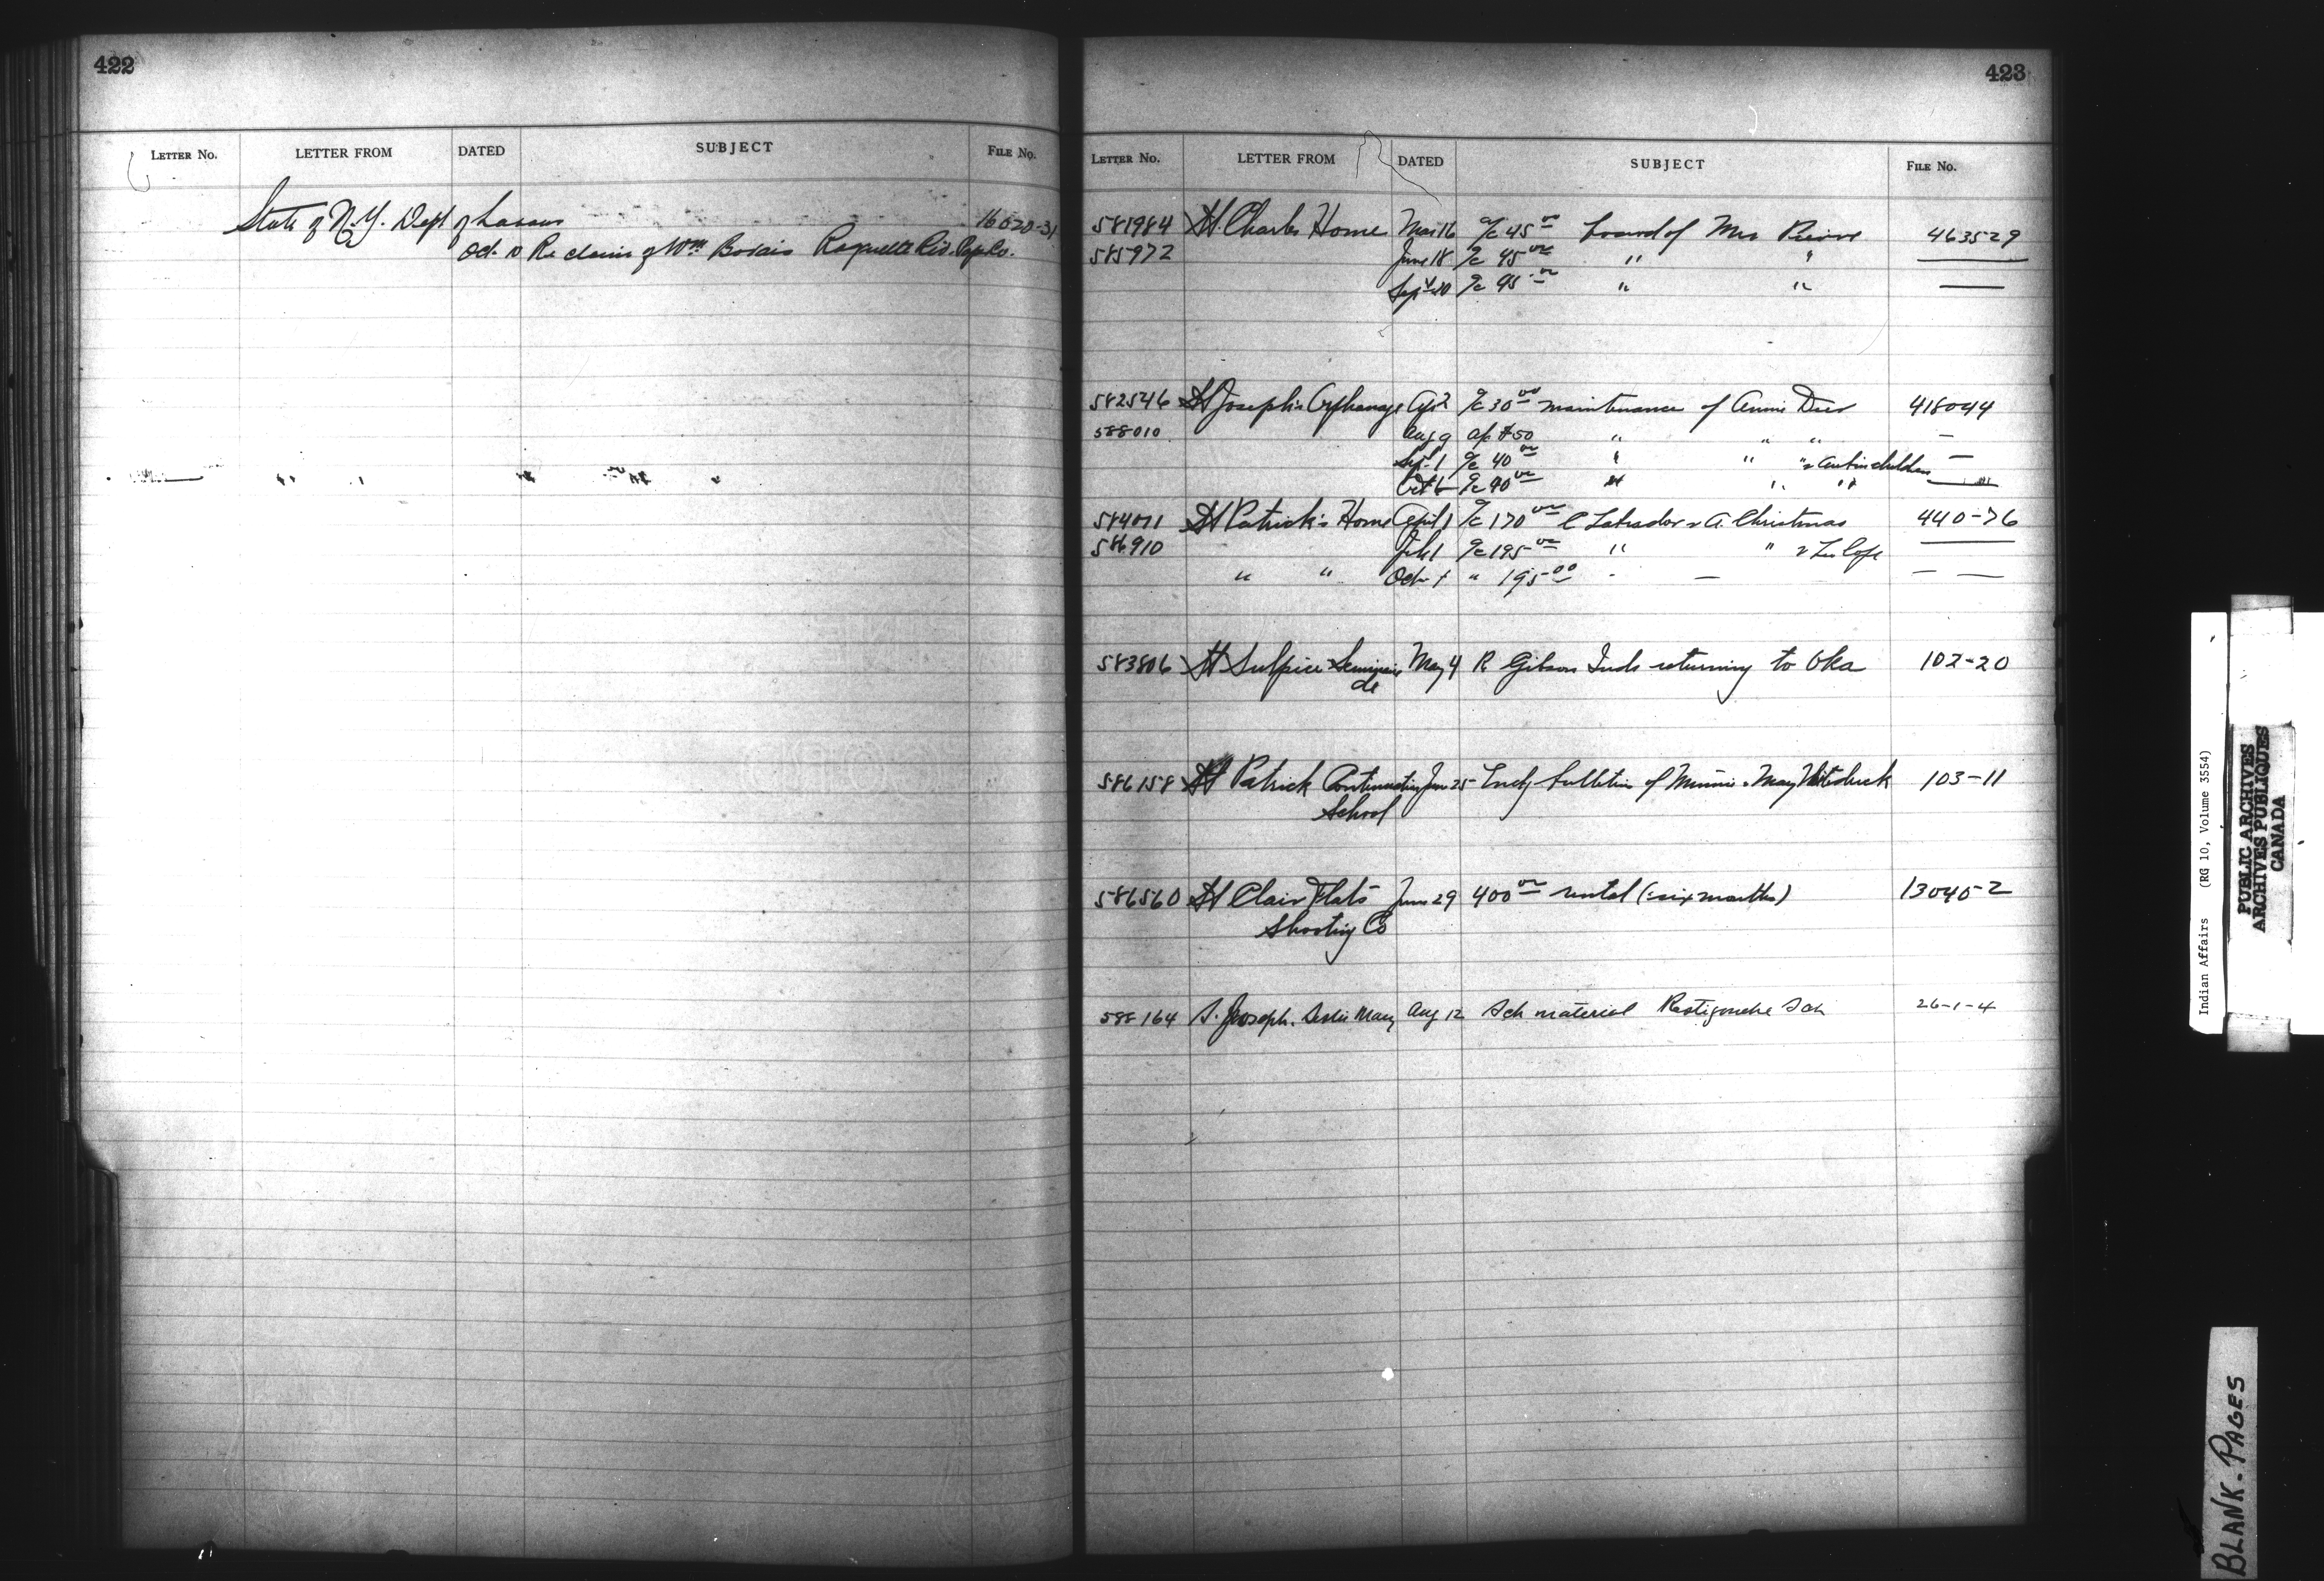 422
LETTER No. LETTER FROM DATED SUBJECT FILE No.
State of N.Y. Dept of Labour 16020-31
Oct. Re claim of Wm Raquette Riv. Pap Co.
423
LETTER No. LETTER FROM DATED SUBJECT FILE No.
581984 St Charles Home Mar 16 a/c 45 00 board of Mrs Pierre 463529
585972 June 18 a/c 45 00 " "
Sept 20 a/c 45 00 " "
582546 St Joseph's Orphanage Apr 2 a/c 30 00 maintenance of Annie Deer 418044
588010 Aug 9 a/c $50 " " " —
Sept 1 a/c 40 00 " " " children —
Oct a/c 40 00 " " "
584071 St Patrick's Home April 1 a/c 170 00 C Labrador & A. Christmas 440-76
586910 July 1 a/c 195 00 " " &
" " Oct 1 " 195 00 - — — —
583806 St Sulpice Seminaire May 4 R Gibson Inds returning to Oka 102-20
de
586158 St Patrick Continuation June 25 bulletin of Minnie & May Whiteduck 103-11
School
586560 St Clair Flats June 29 400 00 rental (six months) 13040-2
Shooting Co
588164 S. Joseph. Leslie Mary Aug 12 Sch material Restigouche Sch 26-1-4
Indian Affairs (RG 10, Volume 3554)
PUBLIC ARCHIVES
ARCHIVES PUBLIQUES
CANADA
BLANK-PAGES